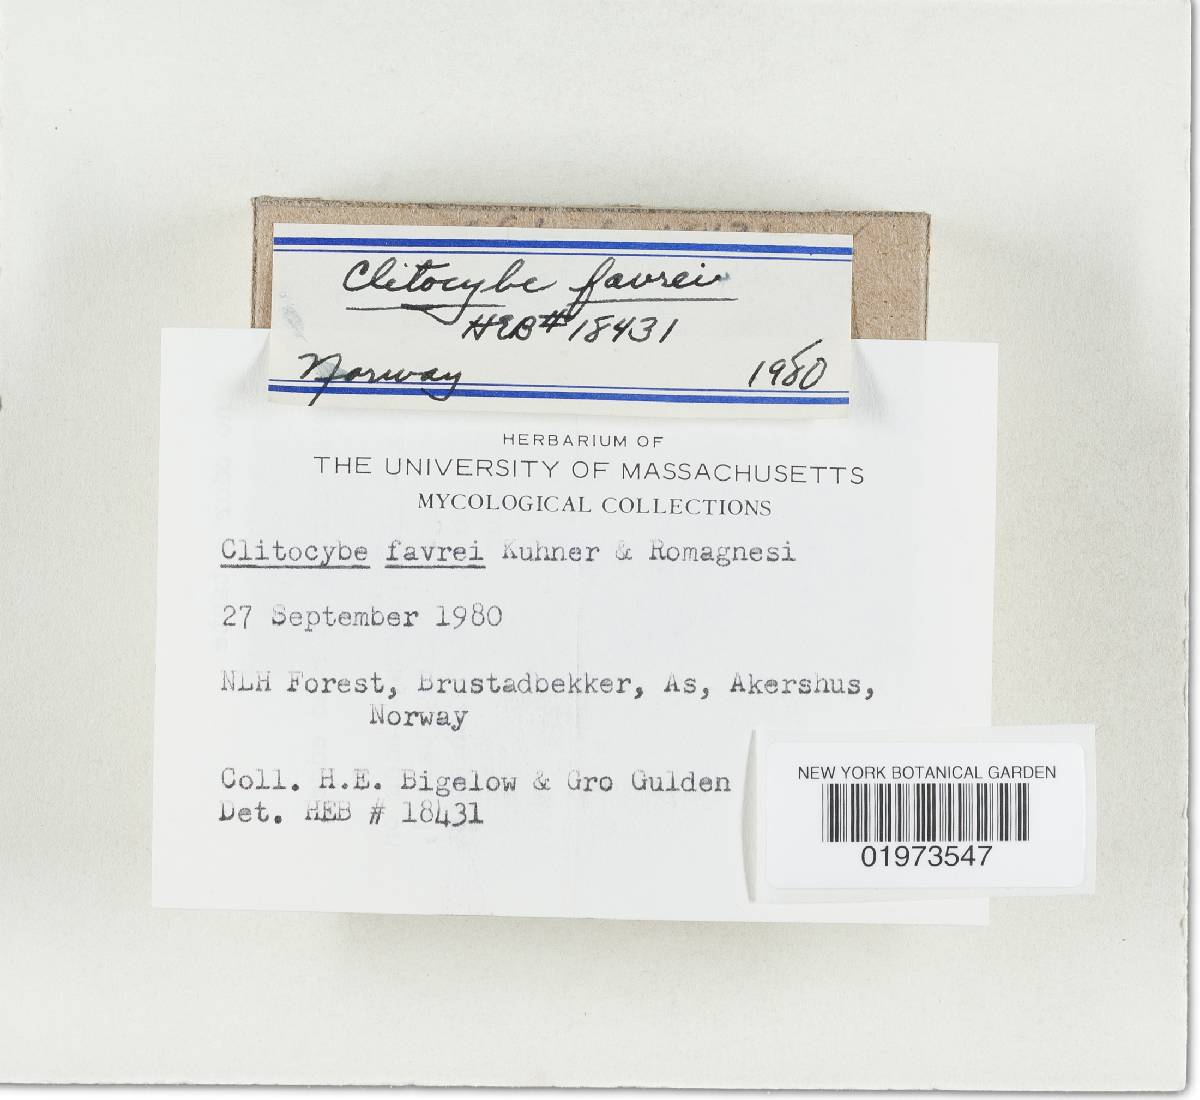 Clitocybe favrei
HEB# 18431
Norway 1980
HERBARIUM OF
THE UNIVERSITY OF MASSACHUSETTS
MYCOLOGICAL COLLECTIONS
Clitocybe favrei Kuhner & Romagnesi
27 September 1980
NLH Forest, Brustadbekker, As, Akershus,
Norway
Coll. H.E. Bigelow & Gro Gulden
Det. HEB # 18431
NEW YORK BOTANICAL GARDEN
01973547